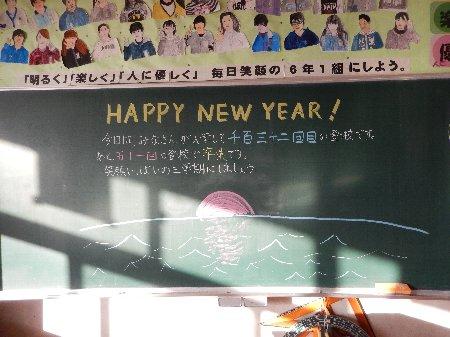 「明るく」「楽しく」「人に優しく」 毎日笑顔の6年1組にしよう。
HAPPY NEW YEAR!
今日は、みなさんが入学して千百三十二回目の登校です。
あと五十一回の登校で卒業です。
笑顔いっぱいの三学期にしましょう